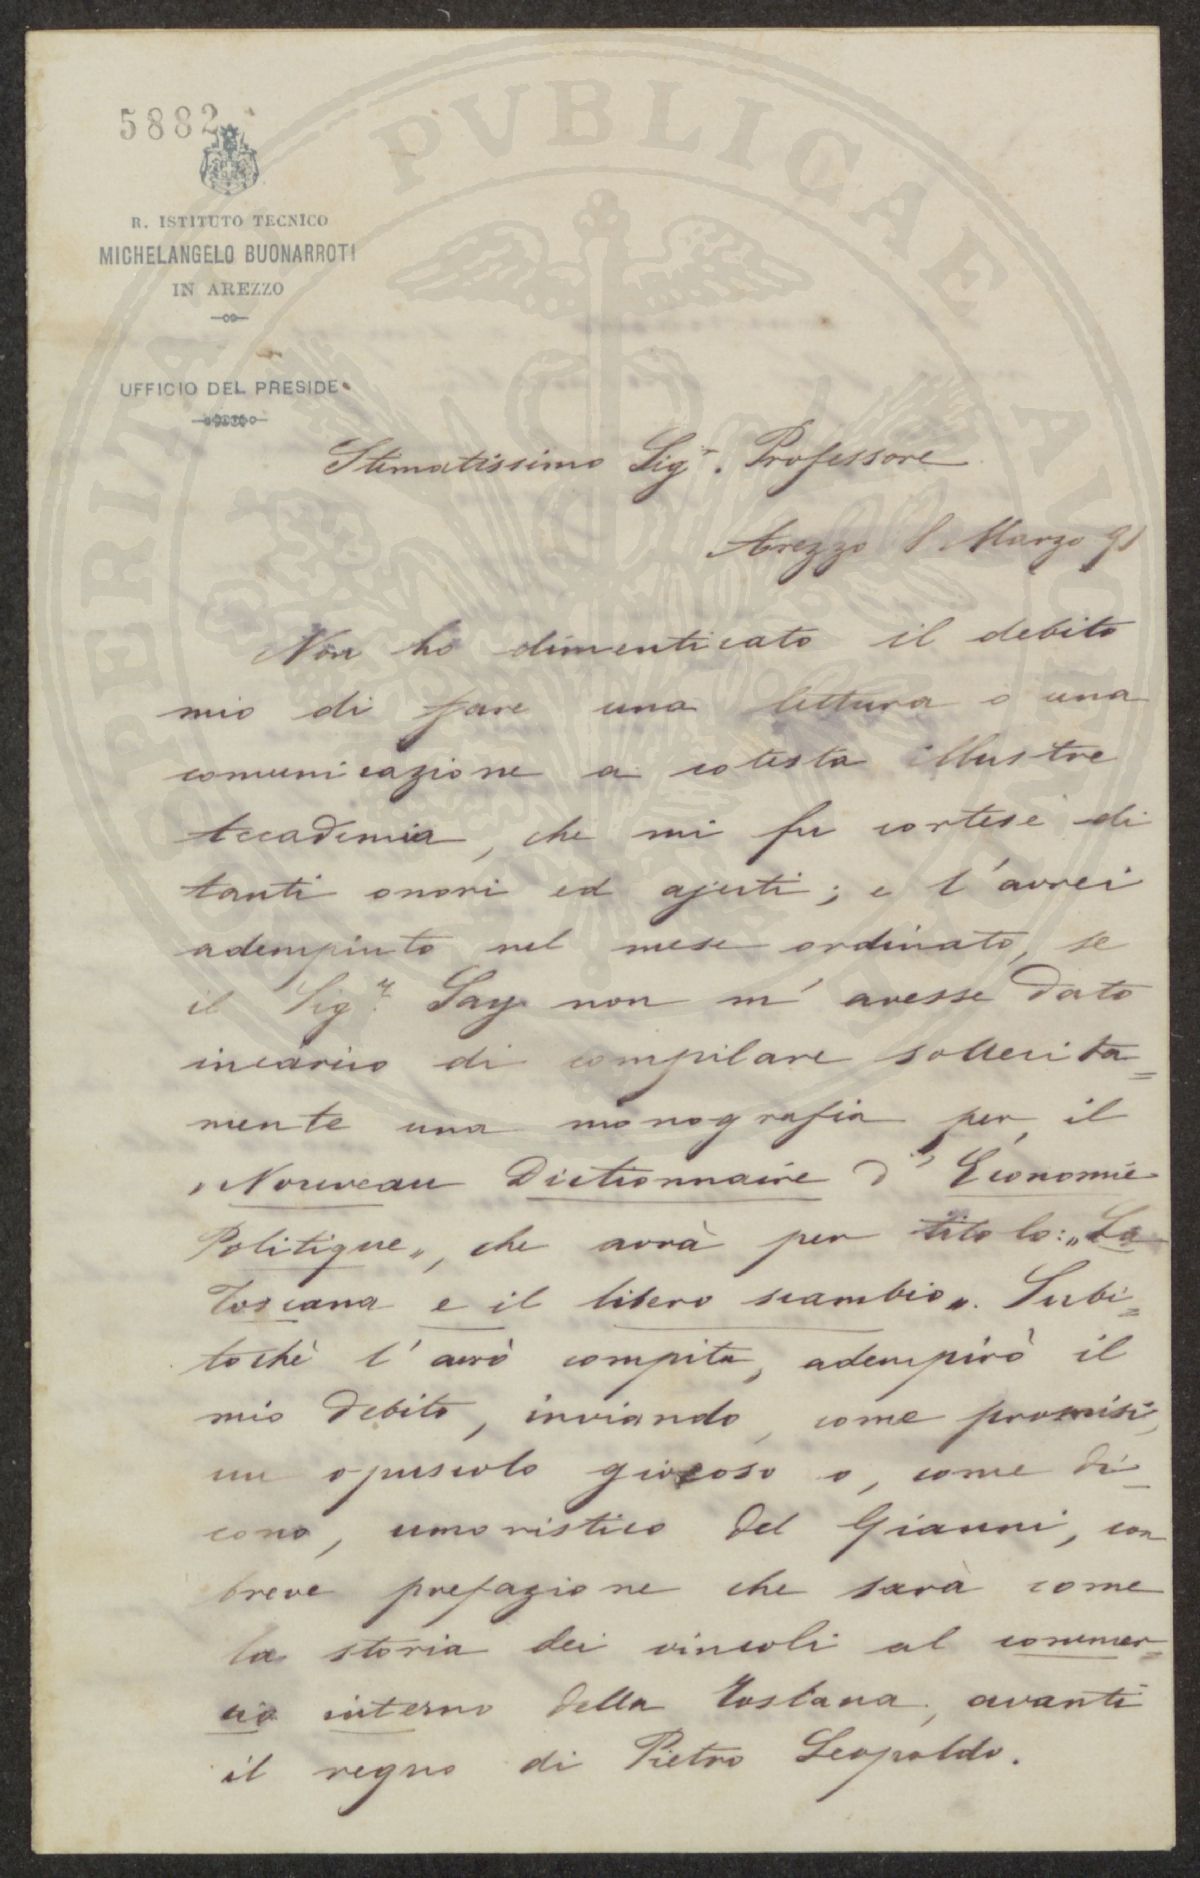 5882
R. ISTITUTO TECNICO
MICHELANGELO BUONARROTI
IN AREZZO
UFFICIO DEL PRESIDE
Stimatissimo Sigr. Professore
Arezzo 8 Marzo 91
Non ho dimenticato il debito
mio di fare una lettura o una
comunicazione a cotesta illustre
Accademia, che mi fu cortese di
tanti onori ed ajuti; e l'avrei
adempiuto nel mese ordinato, se
il Sigr. Say non m'avesse dato
incarico di compilare sollecita=
mente una monografia per il
"Nouveau Dictionnaire d'Economie
Politique", che avrà per titolo: "La
Toscana e il libero scambio". Subi=
tochè l'avrò compita, adempirò il
mio debito, inviando, come promisi,
un opuscolo giocoso o, come di=
cono, umoristico del Gianni, con
breve prefazione che sarà come
la storia dei vincoli al commer=
cio interno della Toscana, avanti
il regno di Pietro Leopoldo.
PERITAE PVBLICAE